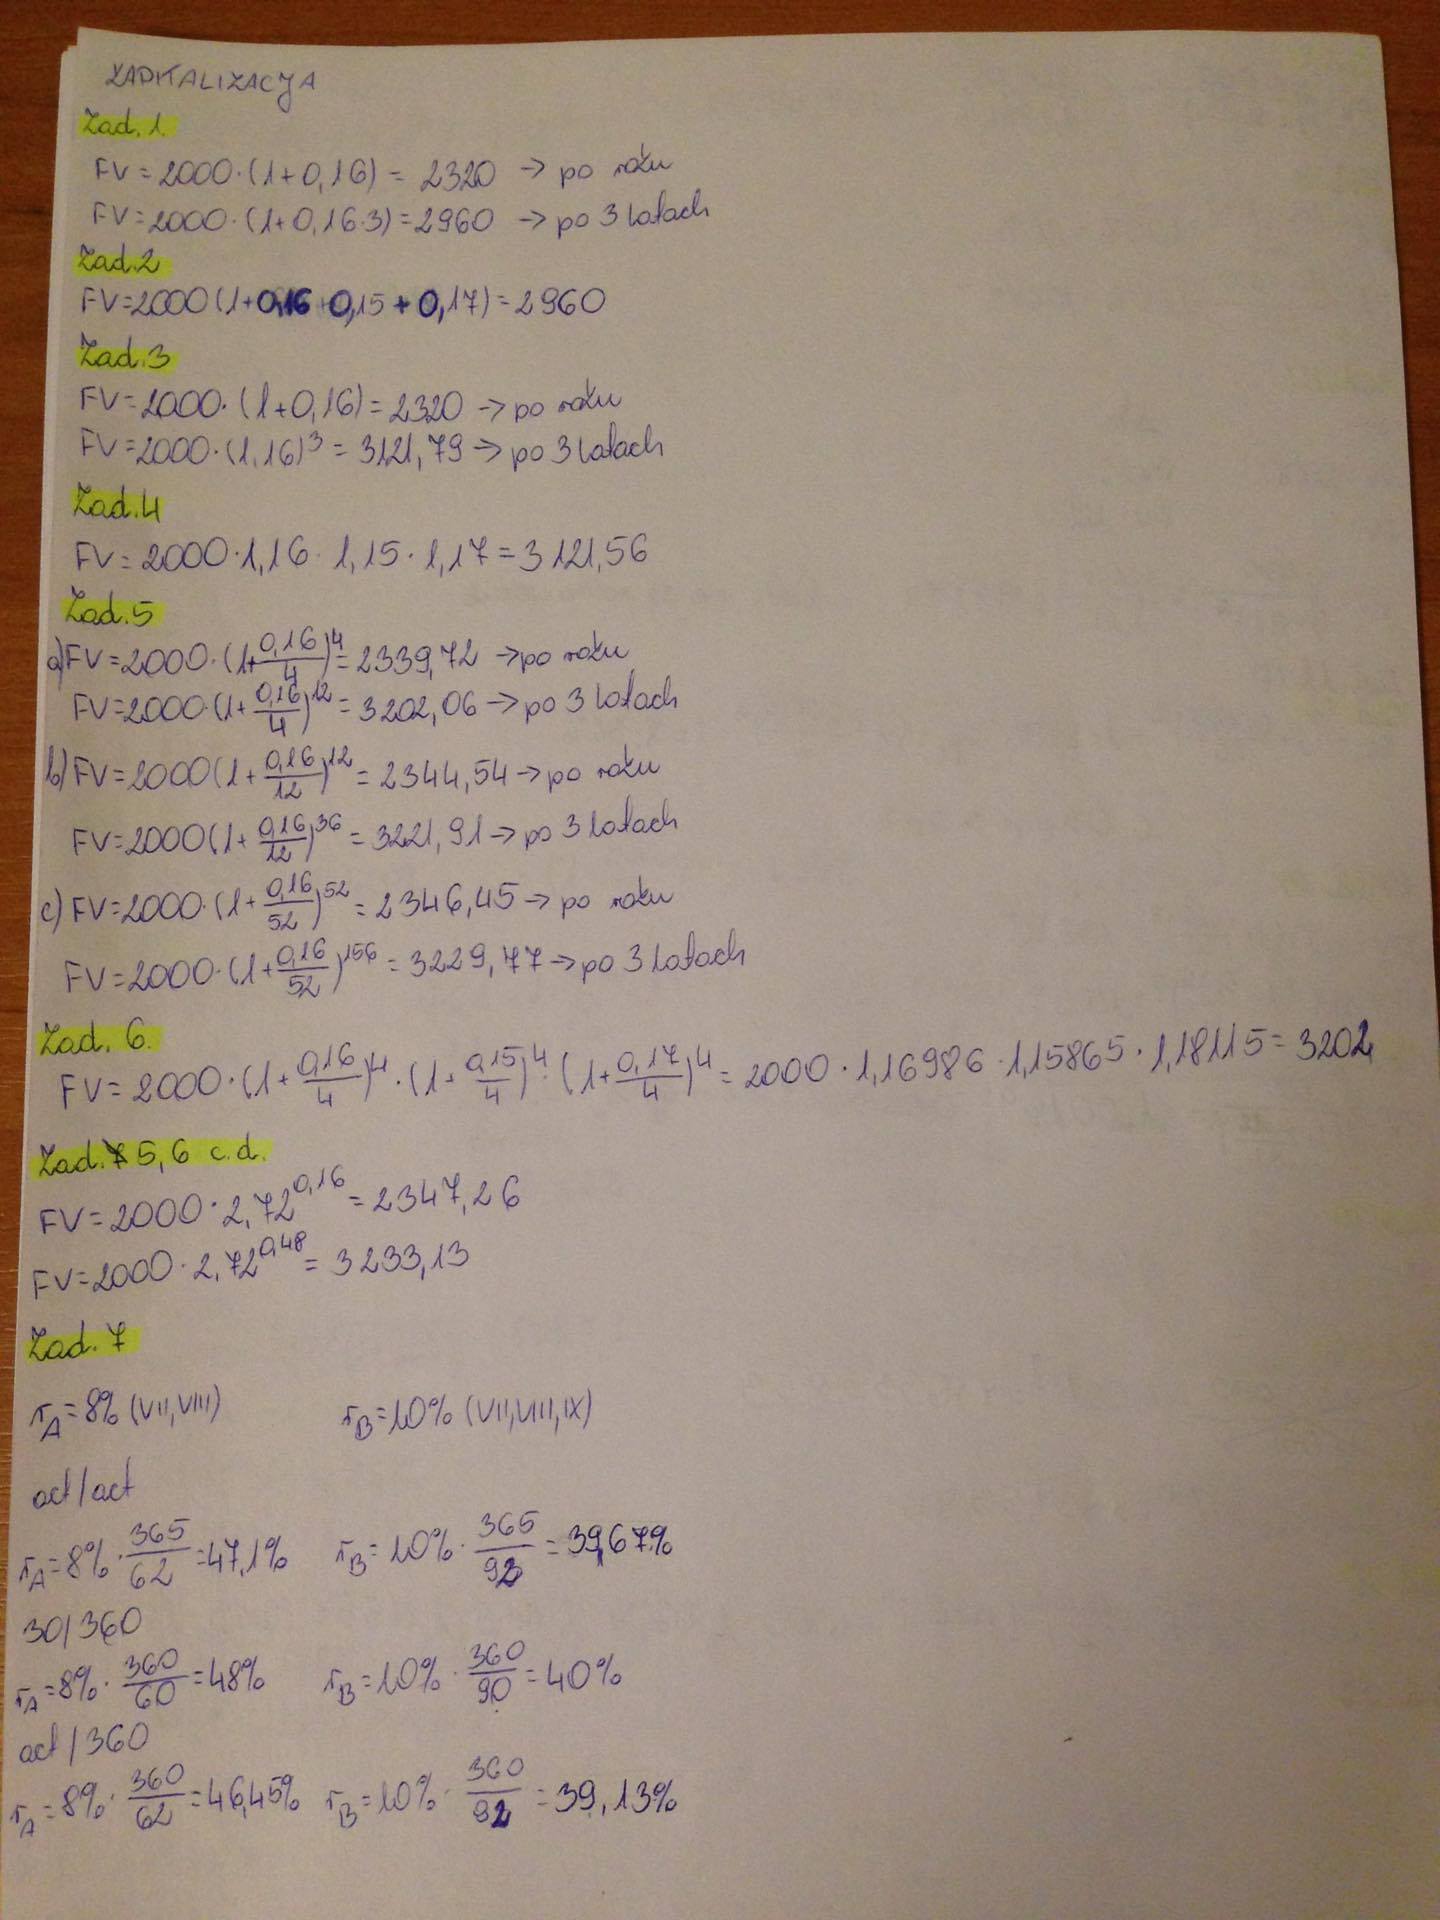 KAPITALIZACJA
Zad. 1.
FV = 2000·(1+0,16) = 2320 → po roku
FV = 2000·(1+0,16·3) = 2960 → po 3 latach
Zad.2
FV=2000(1+0,16+0,15+0,17)=2960
Zad.3
FV=2000·(1+0,16)=2320 → po roku
FV=2000·(1,16)³ = 3121,79 → po 3 latach
Zad.4
FV = 2000·1,16·1,15·1,17 = 3121,56
Zad.5
a) FV=2000·(1+0,16/4)^4=2339,72 → po roku
FV=2000·(1+0,16/4)^12 = 3202,06 → po 3 latach
b) FV=2000(1+0,16/12)^12 = 2344,54 → po roku
FV=2000(1+0,16/12)^36 = 3221,91 → po 3 latach
c) FV=2000·(1+0,16/52)^52 = 2346,45 → po roku
FV=2000·(1+0,16/52)^156 = 3229,77 → po 3 latach
Zad. 6.
FV = 2000·(1+0,16/4)^4·(1+0,15/4)^4·(1+0,17/4)^4 = 2000·1,16986·1,15865·1,18115 = 3202
Zad. 5,6 c.d.
FV=2000·2,72^0,16 = 2347,26
FV=2000·2,72^0,48 = 3233,13
Zad. 7
r_A=8% (VII,VIII) r_B=10% (VII,VIII,IX)
act/act
r_A=8%·365/62=47,1% r_B=10%·365/92=39,67%
30/360
r_A=8%·360/60=48% r_B=10%·360/90=40%
act/360
r_A=8%·360/62=46,45% r_B=10%·360/92=39,13%